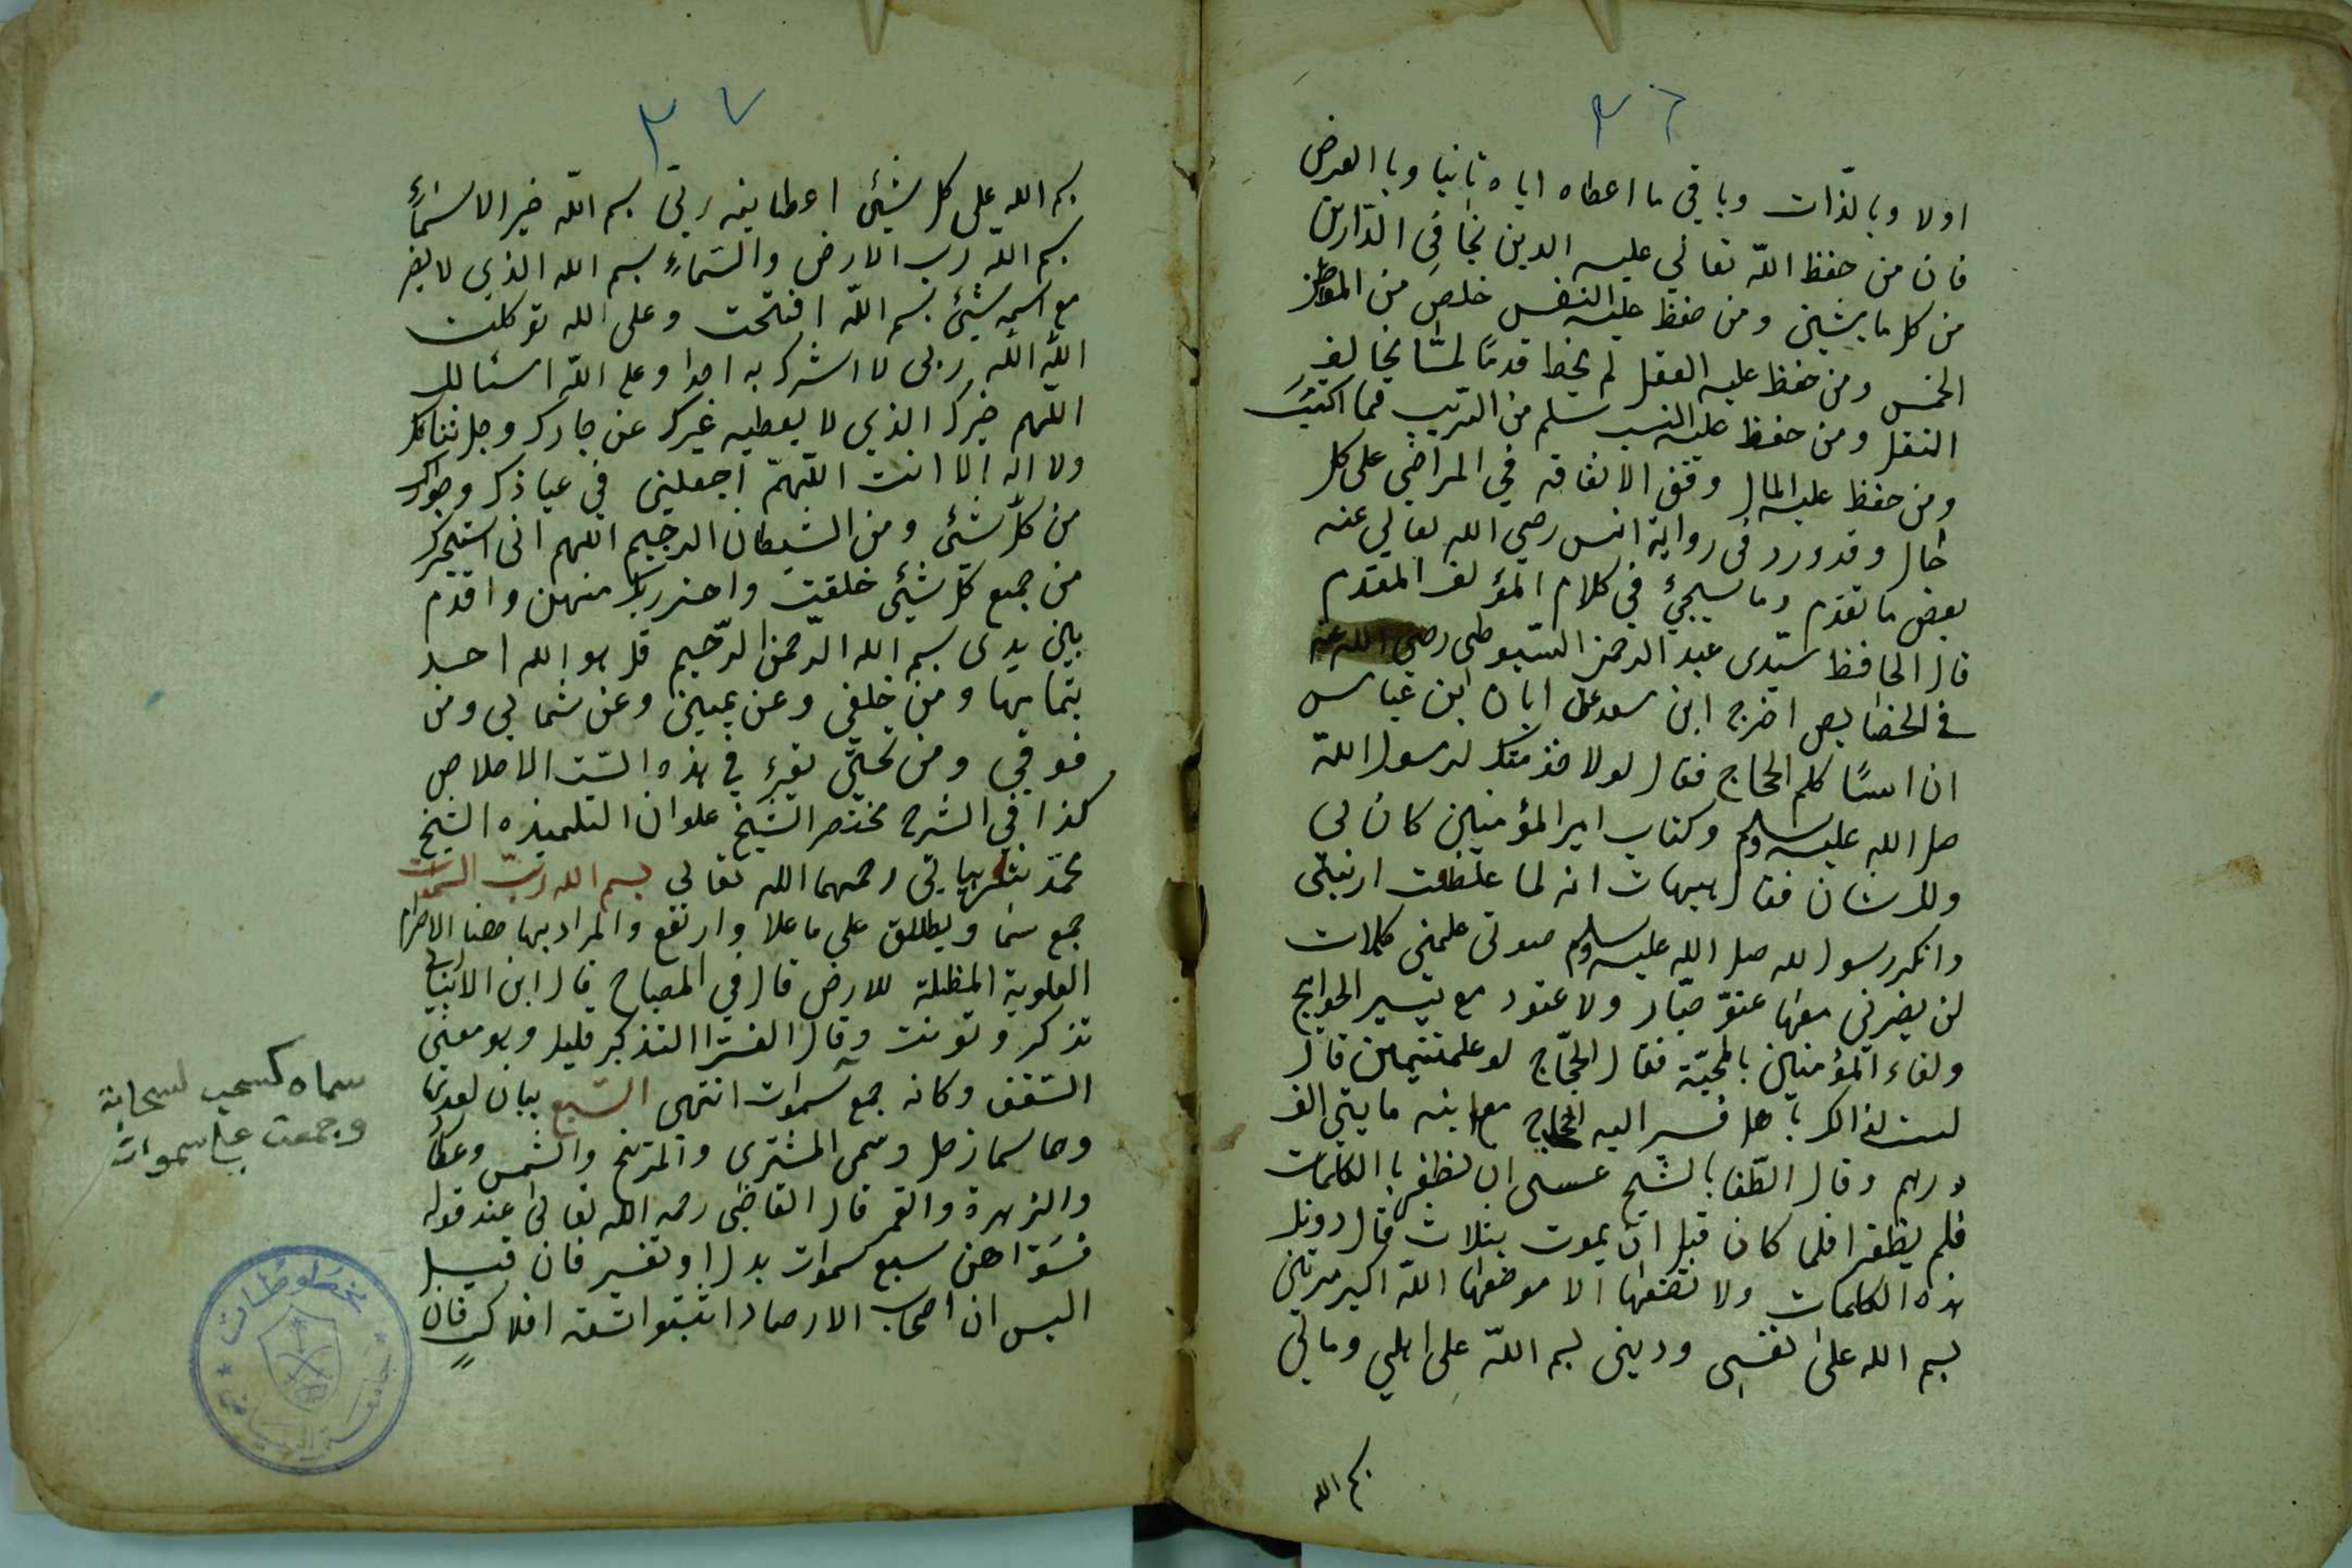 ٣٦
اولا وبالذّات وباقي ما اعطاه اياه ثانيا وبا العرض
فان من حفظ اللّه تعالي عليه الدين نجا في الدّارين
من كل ما يشين ومن حفظ عليه النفس خلص من
الخمس ومن حفظ عليه العقل لم يخط قدمًا لمّا يخالف
النقل ومن حفظ عليه النسب سلم من
ومن حفظ عليه المال وفق الانفاقه في المراضي على كل
حال وقد ورد في رواية انس رضي الله تعالي عنه
بعض ما تقدم وما سيجيئ في كلام المؤلف المقدم
قال الحافظ سيّدى عبد الرحمن السّيوطي رضي الله عنه
في الخصايص اخرج ابن سعد عن ابان ابن عياس
ان انسًا كلم الحجاج فقال لولا خدمتك لرسول اللّه
صلى الله عليه وسلم وكتاب امير المؤمنين كان لي
ولك شان فقال هيهات انه لما غلظت ارنبتي
وانكر رسول لله صلى الله عليه وسلم صوتي علمني كلمات
لن يضرني معها عتوّ جبّار ولا عتود مع تيسير الحوايج
ولقاء المؤمنين بالمحبّة فقال الحجّاج لو علمتنيهن قال
لست لذالك باهل فسير اليه الحجاج مع ابنه مايتي الف
درهم وقال الطفا بالشّيخ عسى ان تظفر با الكلمات
فلم يظفرا فلما كان قبل ان يموت بثلاث قال دونك
هذه الكلمات ولا تضعها الا موضعها اللّه اكبر مرتين
بسم الله على نفسي وديني بسم اللّه على اهلي ومالي
بسم الله
٣٧
بسم الله علي كل شيئ اعطانيه ربّي بسم اللّه خير الاسماءِ
بسم اللّه رب الارض والسّماءِ بسم الله الذي لا يضر
مع اسمه شيئ بسم اللّه افتتحت وعلى الله توكلت
اللّه اللّه ربى لا اشرك به احدا وعلى اللّه اسئالك
اللّهم خيرك الذي لا يعطيه غيرك عز جارك وجل ثناك
ولا اله الا انت اللّهمّ اجعلني في عياذك وجوارك
من كلّ شئى ومن الشيطان الرجيم اللهم انى استجرك
من جميع كلّ شيئى خلقت واحترز بك منهن واقدّم
بين يدى بسم الله الرّحمن الرّحيم قل هو الله احد
بتمامها ومن خلفي وعن يميني وعن شمالي ومن
فوقي ومن تحتي تقرء في هذه السّت الاخلاص
كذا في الشرح مختصر الشّيخ علوان التلميذه الشيخ
محمّد رحمهما الله تعالي بسم الله ربّ السّموات
جمع سما ويطلق علي ما علا وارتفع والمراد بها هنا الاجرام
العلوية المظلة للارض قال في المصباح قال ابن الانباري
تذكر وتونث وقال الفرّا التذكير قليل وهو معني
السّقف وكانه جمع سموات انتهى السّبع بيان لعدتها
وهما سما زحل وسمى المشترى والمرّيخ والشّمس وعطارد
والزهرة والقمر قال القاضي رحمه الله تعالى عند قوله
فسوّاهن سبع سموات بدل او تفسير فان قيل
اليس ان اصحاب الارصاد اثبتوا تسعة افلاكٍ فان
سماه كسحب لسحابة
وجمعت على سموات
مخطوطات
جامعة الرياض